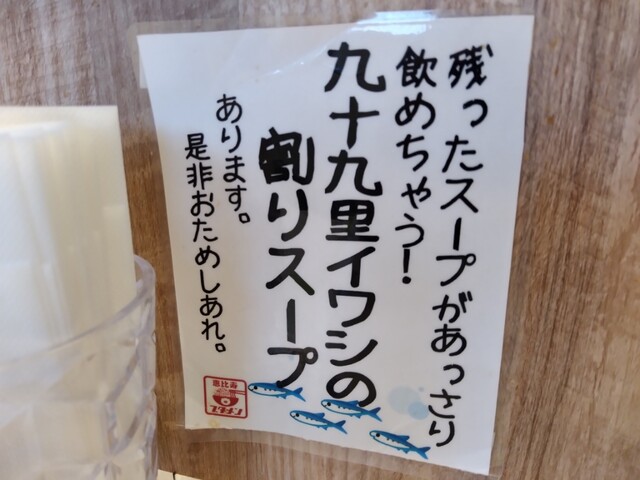 残ったスープがあっさり
飲めちゃう!
九十九里イワシの
割りスープ
あります。
是非おためしあれ。
恵比寿